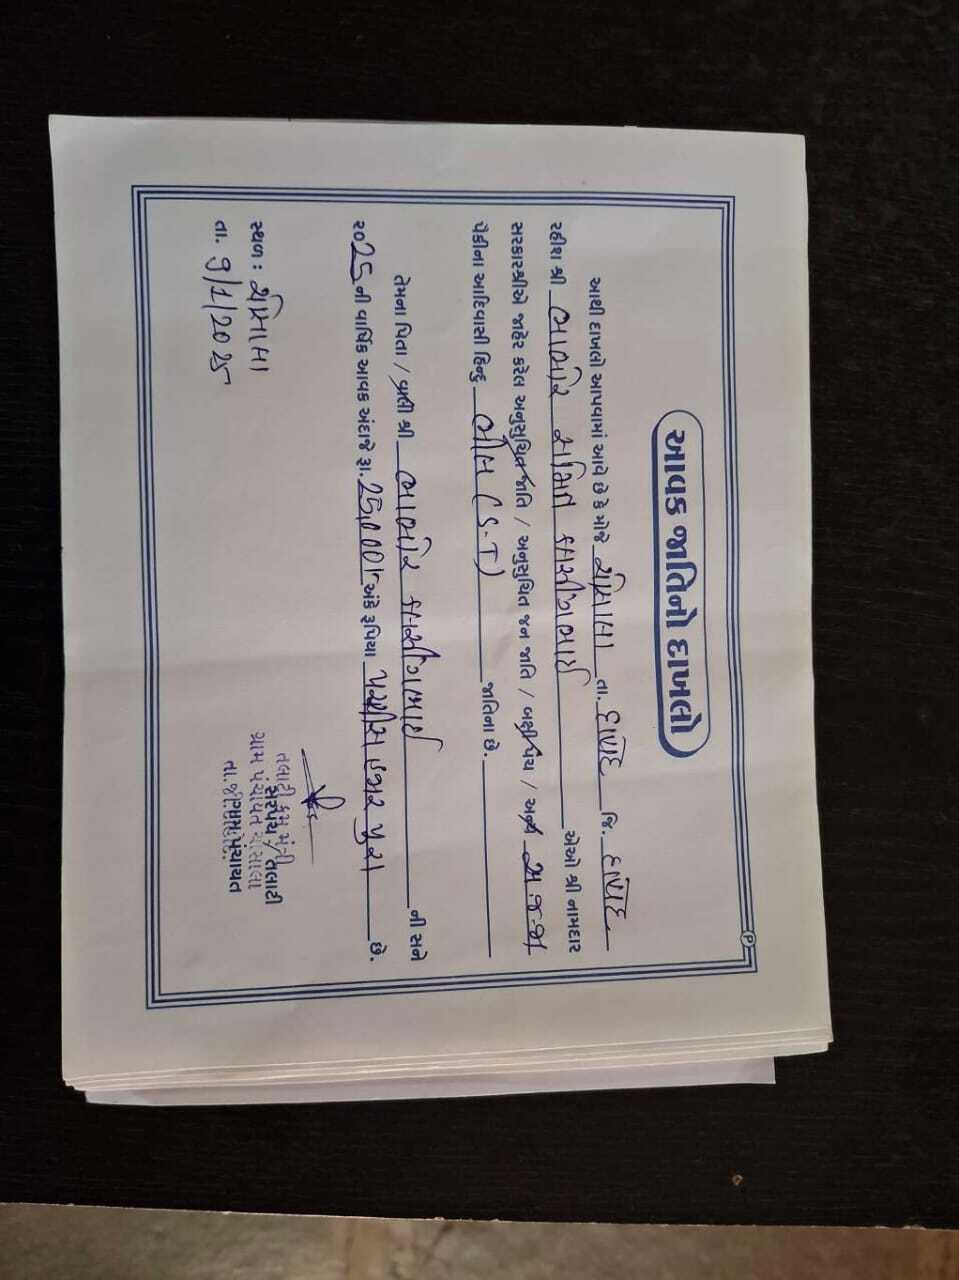 આવક જાતિનો દાખલો
આથી દાખલો આપવામાં આવે છે કે મોજે તા. દાહોદ જિ. દાહોદ
રહીશ શ્રી ભાભોર કાળીયાભાઈ એઓ શ્રી નામદાર
સરકારશ્રીએ જાહેર કરેલ અનુસૂચિત જાતિ / અનુસૂચિત જન જાતિ / બક્ષીપંચ / અન્ય અ.જ.જા
પૈકીના આદિવાસી હિન્દુ ભીલ (S.T) જાતિના છે.
તેમના પિતા / વાલી શ્રી ભાભોર ની સને
૨૦25 ની વાર્ષિક આવક અંદાજે રૂા. 25,000/- અંકે રૂપિયા પચ્ચીસ હજાર પુરા છે.
સ્થળ :
તા. 9/1/2025
તલાટી કમ મંત્રી
સરપંચ / તલાટી
ગ્રામ પંચાયત